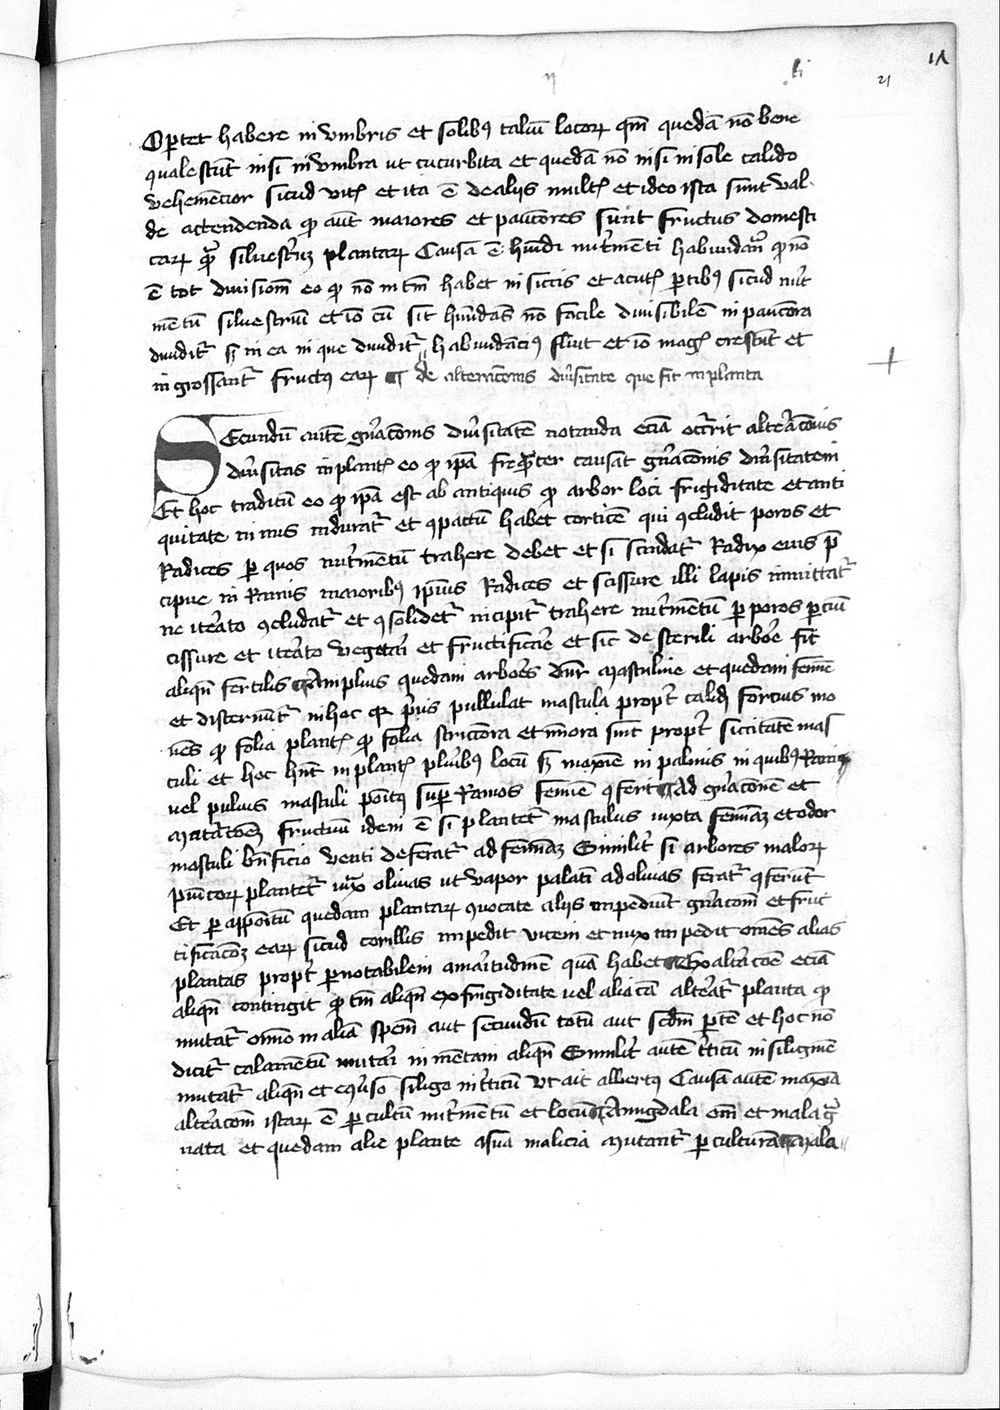 21
Oportet habere in vmbris et solibus talium locorum quoniam quedam non bene
qualescunt nisi in vmbra ut cucurbita et quedam non nisi in sole calido
vehemencior sicud vitis et ita est de aliis multis et ideo ista sunt val
de actendenda quod autem maiores et pauciores sunt fructus domesti
carum quam siluestrium plantarum Causa est humidi nutrimenti habundancia quod non
est tot diuisionum eo quod non in tantum habet in siccis et acutis partibus sicud nutri
mentum siluestrium et ideo cum sit humidans non facile diuisibile in pauciora
diuiditur sed in ea in que diuiditur habundancius fluit et ideo magis crescunt et
ingrossantur fructus earum de alteracionis diuersitate que fit in planta
Secundum autem generacionis diuersitatem notanda eciam occurrit alteracionis
diuersitas in plantis eo quod ipsa frequenter causat generacionis diuersitatem
Et hoc traditum eo quod ipsa est ab antiquis quod arbor loci frigiditate et anti
quitate nimis induratur et conpactum habet corticem qui concludit poros et
Radices per quos nutrimentum trahere debet et si scindatur Radix eius pre
cipue in Ramis maioribus ipsius Radices et scissure illi lapis inmittatur
ne iterato concludatur et consolidetur incipitur trahere nutrimentum per poros
cissure et iterato vegetari et fructificare et sic de sterili arbore fit
aliquando fertilis Amplius quedam arbores dicuntur masculine et quedam femine
et discernuntur in hoc quia prius pullulat mascula propter calidum forcius mo
uens quod folia plantis quod folia stricciora et minora sunt propter siccitatem mas
culi et hoc habent in plantis pluribus locum sed maxime in palmis in quibus Ramus
vel puluis masculi positus super Ramos femine confert Ad generacionem et
maturacionem fructuum idem est si plantetur masculus iuxta feminam et odor
masculi beneficio venti deferatur ad feminam Similiter si arbores malorum
punicorum plantetur iuxta oliuas ut vapor palati ad oliuas feratur conferunt
Et per appositum quedam plantarum conuocate aliis inpediunt generacionem et fruc
tificacionem earum sicud corillis inpedit vitem et nux inpedit omnes alias
plantas propter pernotabilem amaritudinem quam habet Ex alteracione eciam
aliquando contingit quod tamen aliquando ex frigiditate vel alia causa alteratur planta quod
mutatur omnino in aliam speciem aut secundum totum aut secundum partem et hoc non
dicitur calamentum mutari in mentam aliquando Similiter autem triticum in siliginem
mutatur aliquando et conuerso siligo in triticum Vt ait albertus Causa autem maxima
alteracionum istarum est per cultum nutrimentum et locum Amigdala enim et mala gra
nata et quedam alie plante a sua malicia mutantur per culturam mala